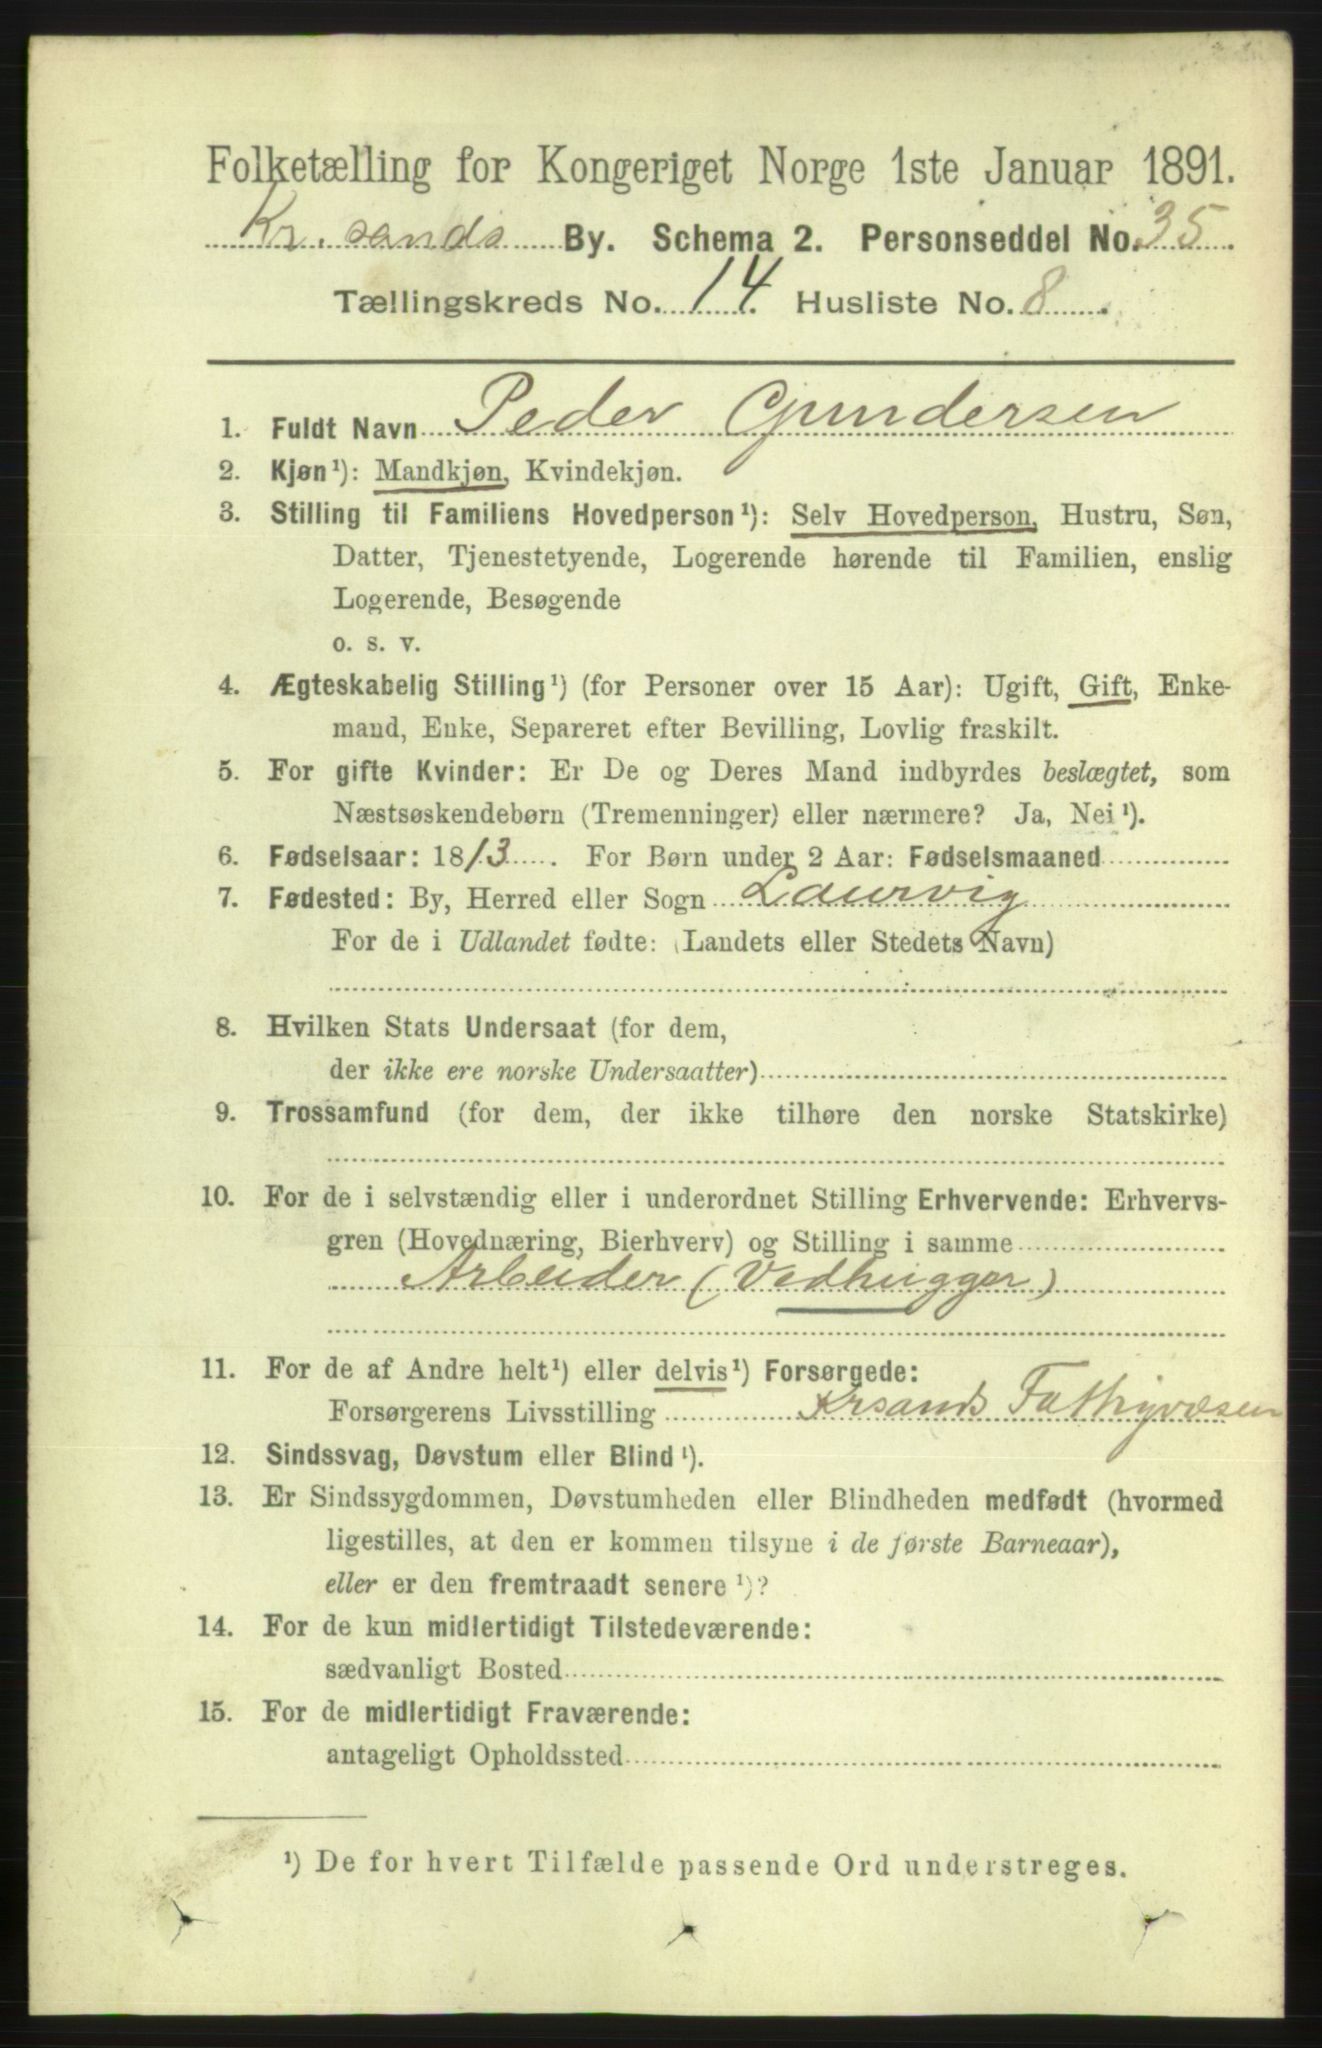 Folketælling for Kongeriget Norge 1ste Januar 1891.
Kr.sands By. Schema 2. Personseddel No. 35.
Tællingskreds No. 14. Husliste No. 8.
1. Fuldt Navn Peder Gundersen
2. Kjøn¹): Mandkjøn, Kvindekjøn.
3. Stilling til Familiens Hovedperson¹): Selv Hovedperson, Hustru, Søn,
Datter, Tjenestetyende, Logerende hørende til Familien, enslig
Logerende, Besøgende
o. s. v.
4. Ægteskabelig Stilling¹) (for Personer over 15 Aar): Ugift, Gift, Enke-
mand, Enke, Separeret efter Bevilling, Lovlig fraskilt.
5. For gifte Kvinder: Er De og Deres Mand indbyrdes beslægtet, som
Næstsøskendebørn (Tremenninger) eller nærmere? Ja, Nei¹).
6. Fødselsaar: 1813. For Børn under 2 Aar: Fødselsmaaned
7. Fødested: By, Herred eller Sogn Laurvig
For de i Udlandet fødte: (Landets eller Stedets Navn)
8. Hvilken Stats Undersaat (for dem,
der ikke ere norske Undersaatter)
9. Trossamfund (for dem, der ikke tilhøre den norske Statskirke)
10. For de i selvstændig eller i underordnet Stilling Erhvervende: Erhvervs-
gren (Hovednæring, Bierhverv) og Stilling i samme
Arbeider (Vedhugger)
11. For de af Andre helt¹) eller delvis¹) Forsørgede:
Forsørgerens Livsstilling Krsands Fattigvæsen
12. Sindssvag, Døvstum eller Blind¹).
13. Er Sindssygdommen, Døvstumheden eller Blindheden medfødt (hvormed
ligestilles, at den er kommen tilsyne i de første Barneaar),
eller er den fremtraadt senere¹)?
14. For de kun midlertidigt Tilstedeværende:
sædvanligt Bosted
15. For de midlertidigt Fraværende:
antageligt Opholdssted
¹) De for hvert Tilfælde passende Ord understreges.